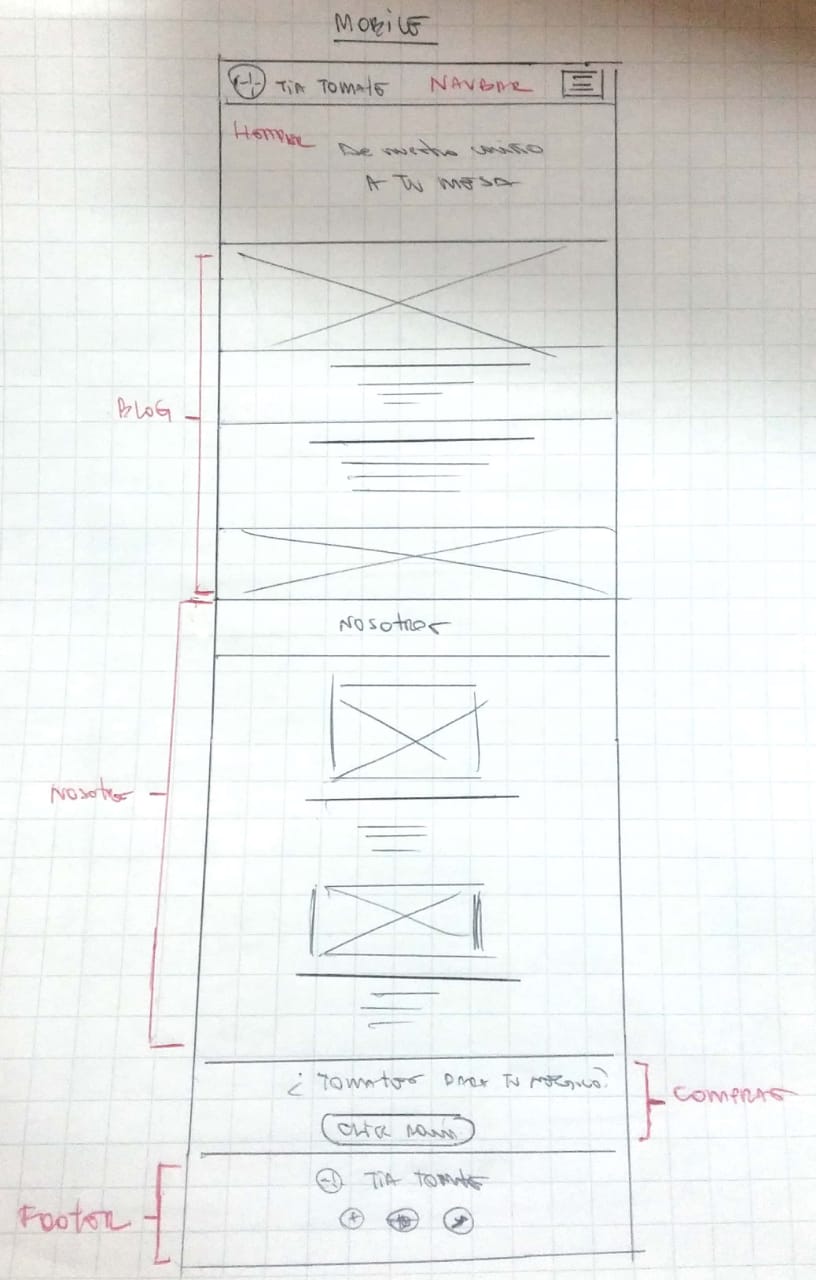 MOBILE
TIA TOMATE NAVBAR
HEADER
De nuestro
A TU MESA
BLOG
NOSOTROS
Nosotros
¿TOMATES PARA TU NEGOCIO?
COMPRAS
CLICK
TIA TOMATE
FOOTER